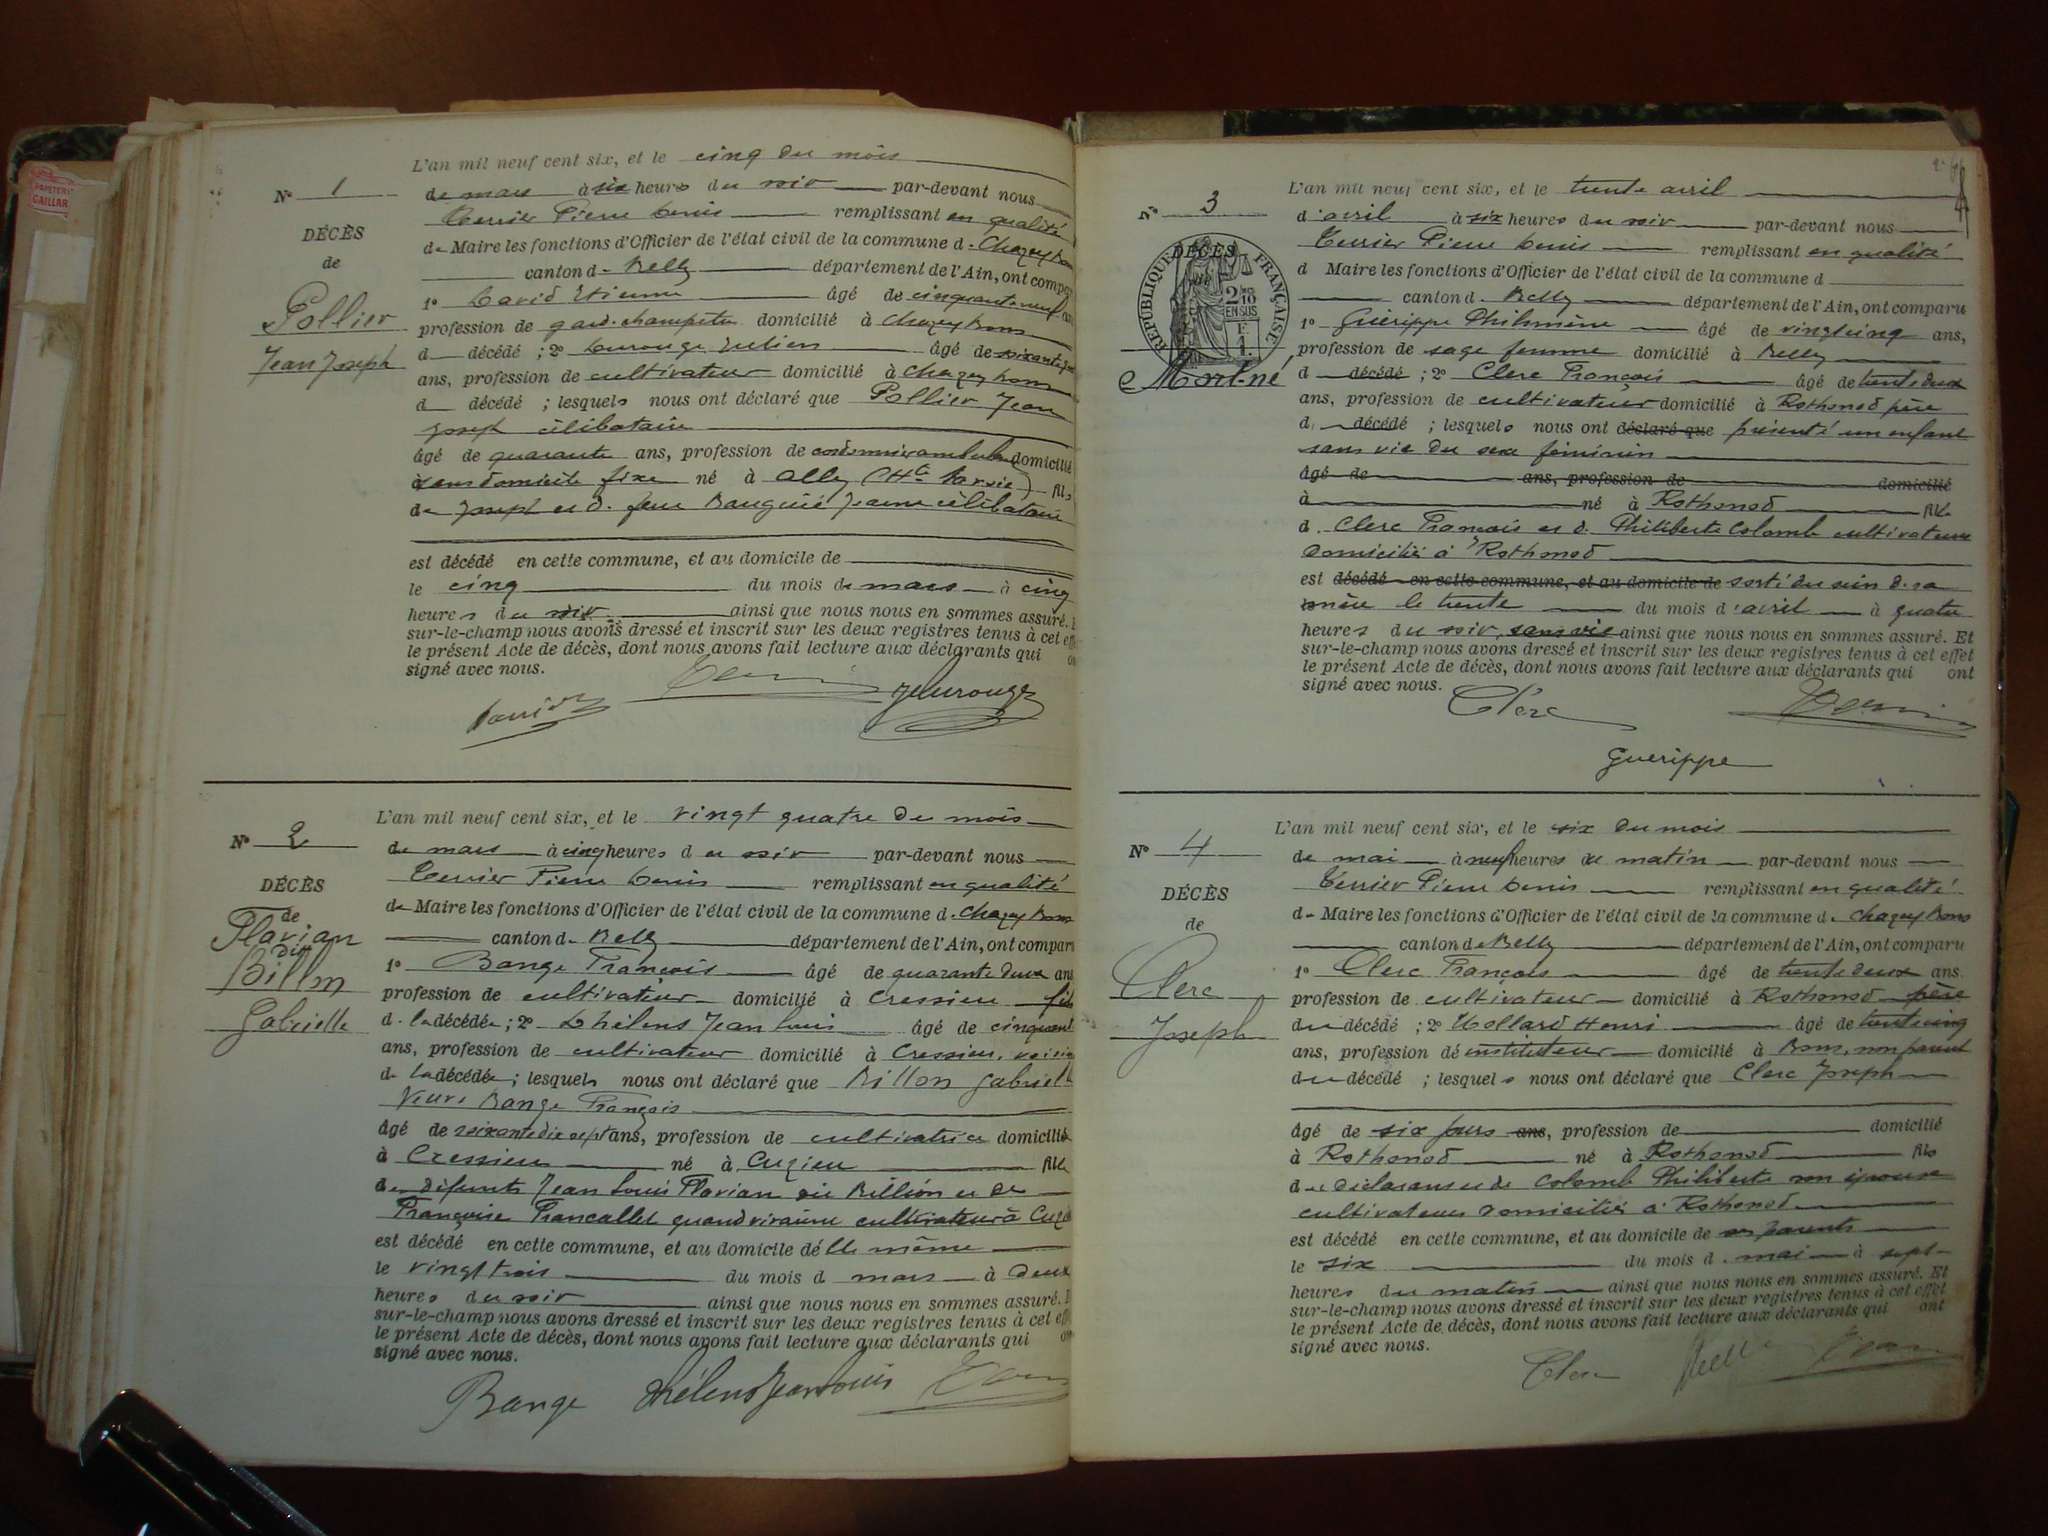 PAPETERIE
GAILLAR
L'an mil neuf cent six, et le cinq du mois
N° 1
de mars à six heures du soir par-devant nous
Terrier Pierre Denis remplissant en qualité
DÉCÈS
de Maire les fonctions d'Officier de l'état civil de la commune d. Chazey Bons
de
canton d. Belley département de l'Ain, ont compar
1° David Etienne âgé de cinquante neuf ans
Pollier
profession de gard. champêtre domicilié à Chazey Bons
Jean Joseph
d décédé ; 2° Durouge Julien âgé de soixante
ans, profession de cultivateur domicilié à Chazey Bons
d décédé ; lesquels nous ont déclaré que Pollier Jean
Joseph célibataire
âgé de quarante ans, profession de cordonnier ambulant domicilié
à sans domicile fixe né à Ally (Hte Savoie) fils
de Joseph et d. feue Jeanne célibataire
est décédé en cette commune, et au domicile de
le cinq du mois de mars à cinq
heures du soir ainsi que nous nous en sommes assuré. E
sur-le-champ nous avons dressé et inscrit sur les deux registres tenus à cet eff
le présent Acte de décès, dont nous avons fait lecture aux déclarants qui on
signé avec nous.
David Terrier JDurouge
L'an mil neuf cent six, et le vingt quatre du mois
N° 2
de mars à cinq heures du soir par-devant nous
Terrier Pierre Denis remplissant en qualité
DÉCÈS
de Maire les fonctions d'Officier de l'état civil de la commune d. Chazey Bons
de
Flavian
dit
Billon
Gabrielle
canton d. Belley département de l'Ain, ont compar
1° Bange François âgé de quarante deux ans
profession de cultivateur domicilié à Cressieu fils
d. la décédée ; 2° Dhélens Jean Louis âgé de cinquante
ans, profession de cultivateur domicilié à Cressieu, voisin
de la décédée ; lesquels nous ont déclaré que Billon Gabrielle
Veuve Bange François
âgé de soixante dix sept ans, profession de cultivatrice domicilié
à Cressieu né à Cuzieu fille
de défunts Jean Louis Flavian dit Billion et de
Françoise Francallet quand vivaient cultivateurs à Cuzieu
est décédé en cette commune, et au domicile d'elle même
le vingt trois du mois d mars à deux
heures du soir ainsi que nous nous en sommes assuré. E
sur-le-champ nous avons dressé et inscrit sur les deux registres tenus à cet eff
le présent Acte de décès, dont nous avons fait lecture aux déclarants qui on
signé avec nous.
Bange Dhélens Jean Louis Terrier
L'an mil neuf cent six, et le trente avril
N° 3
d'avril à six heures du soir par-devant nous
Terrier Pierre Denis remplissant en qualité
DÉCÈS
RÉPUBLIQUE FRANÇAISE
2/10
EN SUS
d Maire les fonctions d'Officier de l'état civil de la commune d
canton d. Belley département de l'Ain, ont comparu
1° Guérippe Philomène âgé de vingt cinq ans,
profession de sage femme domicilié à Belley
Mort-né
d décédé ; 2° Clerc François âgé de trente deux
ans, profession de cultivateur domicilié à Rothonod père
d. décédé ; lesquels nous ont déclaré que présenté un enfant
sans vie du sexe féminin
âgé de ans, profession de domicilié
à né à Rothonod fille
d. Clerc François et d. Philiberte Colomb cultivateurs
domiciliés à Rothonod
est décédé en cette commune, et au domicile de sorti du sein d. sa
mère le trente du mois d'avril à quatre
heures du soir, sans vie ainsi que nous nous en sommes assuré. Et
sur-le-champ nous avons dressé et inscrit sur les deux registres tenus à cet effet
le présent Acte de décès, dont nous avons fait lecture aux déclarants qui ont
signé avec nous.
Clerc Terrier
Guerippe
L'an mil neuf cent six, et le six du mois
N° 4
de mai à neuf heures du matin par-devant nous
Terrier Pierre Denis remplissant en qualité
DÉCÈS
de Maire les fonctions d'Officier de l'état civil de la commune d. Chazey Bons
de
canton de Belley département de l'Ain, ont comparu
1° Clerc François âgé de trente deux ans
Clerc
profession de cultivateur domicilié à Rothonod père
Joseph
du décédé ; 2° Mollard Henri âgé de trente cinq
ans, profession de instituteur domicilié à Bons, non parent
du décédé ; lesquels nous ont déclaré que Clerc Joseph
âgé de six jours ans, profession de domicilié
à Rothonod né à Rothonod fils
du déclarant et de Colomb Philiberte son épouse
cultivateurs domiciliés à Rothonod
est décédé en cette commune, et au domicile de ses parents
le six du mois d. mai à sept
heures du matin ainsi que nous nous en sommes assuré. Et
sur-le-champ nous avons dressé et inscrit sur les deux registres tenus à cet effet
le présent Acte de décès, dont nous avons fait lecture aux déclarants qui ont
signé avec nous.
Clerc Terrier